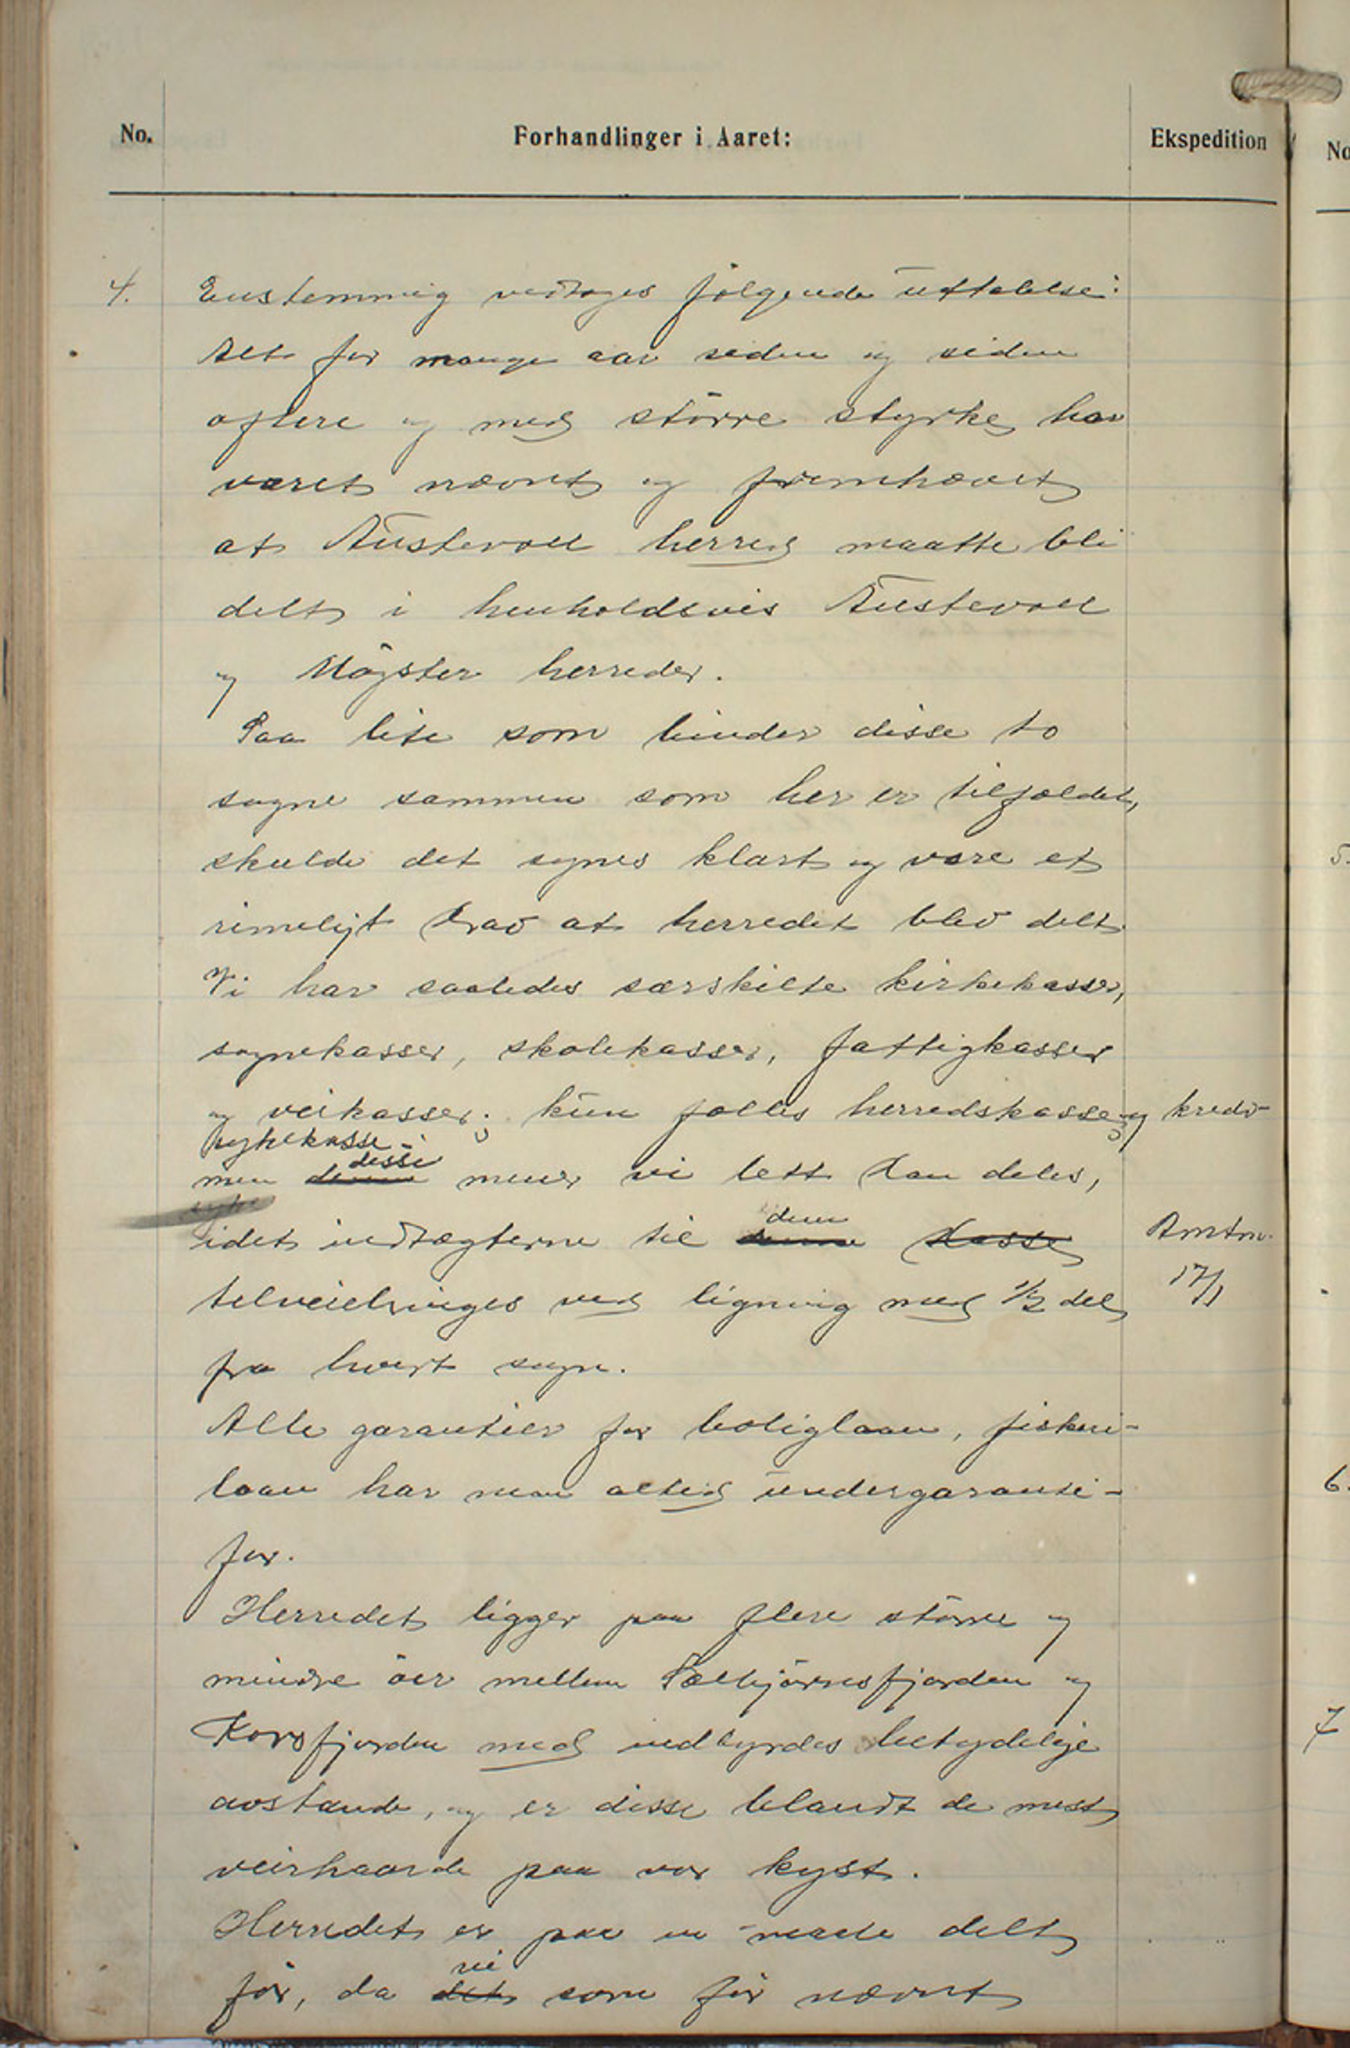 No. Forhandlinger i Aaret: Ekspedition No
4. Enstemmig vedtages følgende uttalelse:
Alt for mange aar siden og siden
oftere og med større styrke har
været nævnt og fremhævet
at Austevoll herred maatte bli
delt i henholdsvis Austevoll
og Møgster herreder.
Saa lite som binder disse to
sogne sammen som her er tilfældet,
skulde det synes klart og være et
rimeligt krav at herredet blev delt.
Vi har saaledes særskilte kirkekasser,
sognekasser, skolekasser, fattigkasser
og veikasser; kun fælles herredskasse og kreds-
sykekasse -
men denne disse mener vi lett kan deles,
syke
idet indtægterne til denne dem kasse
tilveiebringes ved ligning med 1/2 del
fra hvert sogn.
Amtm.
17/1
Alle garantier for boliglaan, fiskeri-
laan har man altid undergaranti-
for.
Herredet ligger paa flere større og
mindre øer mellem Sælbjørnsfjorden og
Korsfjorden med indbyrdes betydelige
avstande, og er disse blandt de mest
veirhaarde paa vor kyst.
Herredet er paa en maate delt
før, da det vi som før nævnt
5.
6.
7